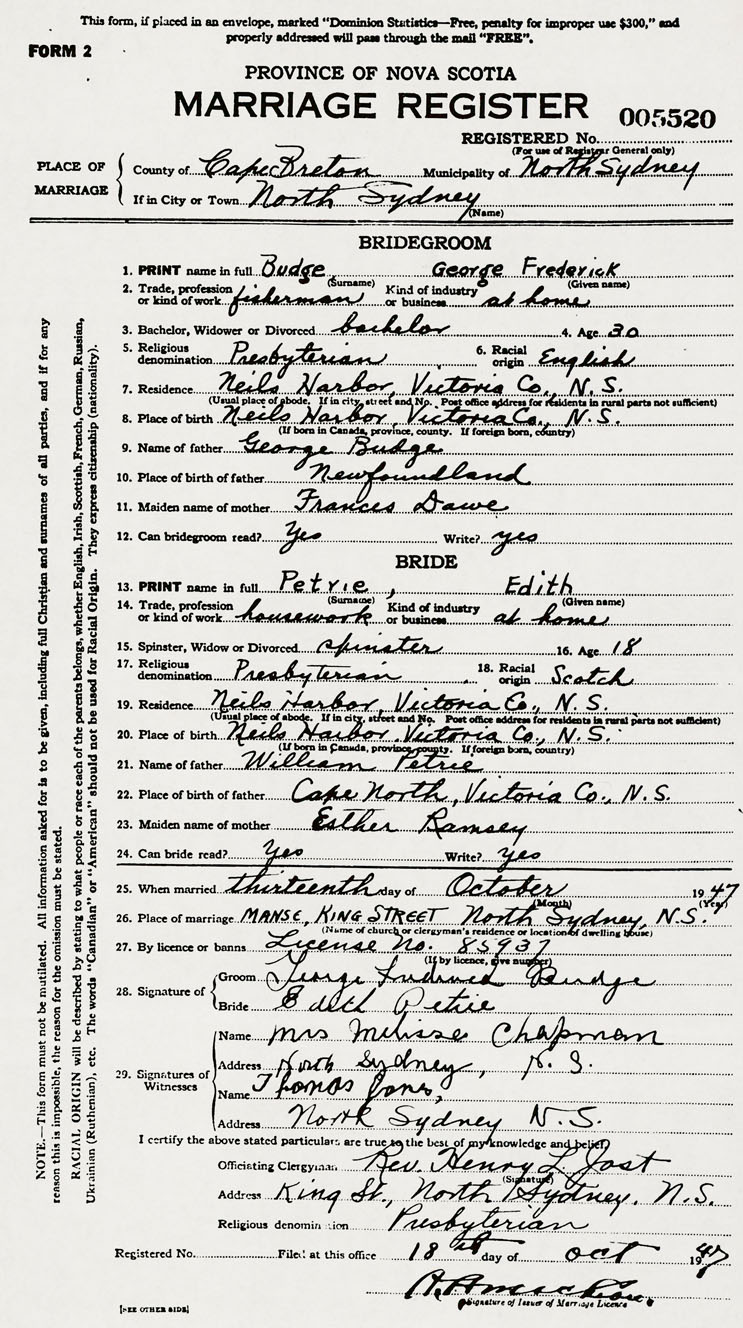 This form, if placed in an envelope, marked "Dominion Statistics—Free, penalty for improper use $300," and
properly addressed will pass through the mail "FREE".
FORM 2
PROVINCE OF NOVA SCOTIA
MARRIAGE REGISTER 005520
REGISTERED No.
(For use of Registrar General only)
PLACE OF MARRIAGE
County of Cape Breton Municipality of North Sydney
If in City or Town North Sydney
(Name)
BRIDEGROOM
1. PRINT name in full Budge, George Frederick
(Surname) (Given name)
2. Trade, profession or kind of work fisherman Kind of industry or business at home
3. Bachelor, Widower or Divorced bachelor 4. Age 30
5. Religious denomination Presbyterian 6. Racial origin English
7. Residence Neils Harbor, Victoria Co., N.S.
(Usual place of abode. If in city, street and No. Post office address for residents in rural parts not sufficient)
8. Place of birth Neils Harbor, Victoria Co., N.S.
(If born in Canada, province, county. If foreign born, country)
9. Name of father George Budge
10. Place of birth of father Newfoundland
11. Maiden name of mother Frances Dawe
12. Can bridegroom read? Yes Write? yes
BRIDE
13. PRINT name in full Petrie, Edith
(Surname) (Given name)
14. Trade, profession or kind of work housework Kind of industry or business at home
15. Spinster, Widow or Divorced spinster 16. Age 18
17. Religious denomination Presbyterian 18. Racial origin Scotch
19. Residence Neils Harbor, Victoria Co., N.S.
(Usual place of abode. If in city, street and No. Post office address for residents in rural parts not sufficient)
20. Place of birth Neils Harbor, Victoria Co., N.S.
(If born in Canada, province, county. If foreign born, country)
21. Name of father William Petrie
22. Place of birth of father Cape North, Victoria Co., N.S.
23. Maiden name of mother Esther Ramsey
24. Can bride read? Yes Write? yes
25. When married thirteenth day of October 1947
(Month) (Year)
26. Place of marriage MANSE, KING STREET North Sydney, N.S.
(Name of church or clergyman's residence or location of dwelling house)
27. By licence or banns License No. 85937
(If by licence, give number)
28. Signature of
Groom George Frederick Budge
Bride Edith Petrie
29. Signatures of Witnesses
Name Mrs Melisse Chapman
Address North Sydney, N.S.
Name Thomas Jones,
Address North Sydney N.S.
I certify the above stated particulars are true to the best of my knowledge and belief
Officiating Clergyman Rev. Henry L. Jost
(Signature)
Address King St., North Sydney, N.S.
Religious denomination Presbyterian
Registered No. Filed at this office 18th day of Oct 1947
Signature of Issuer of Marriage Licence
[SEE OTHER SIDE]
NOTE.—This form must not be mutilated. All information asked for is to be given, including full Christian and surnames of all parties, and if for any
reason this is impossible, the reason for the omission must be stated.
RACIAL ORIGIN will be described by stating to what people or race each of the parents belongs, whether English, Irish, Scottish, French, German, Russian,
Ukrainian (Ruthenian), etc. The words "Canadian" or "American" should not be used for Racial Origin. They express citizenship (nationality).